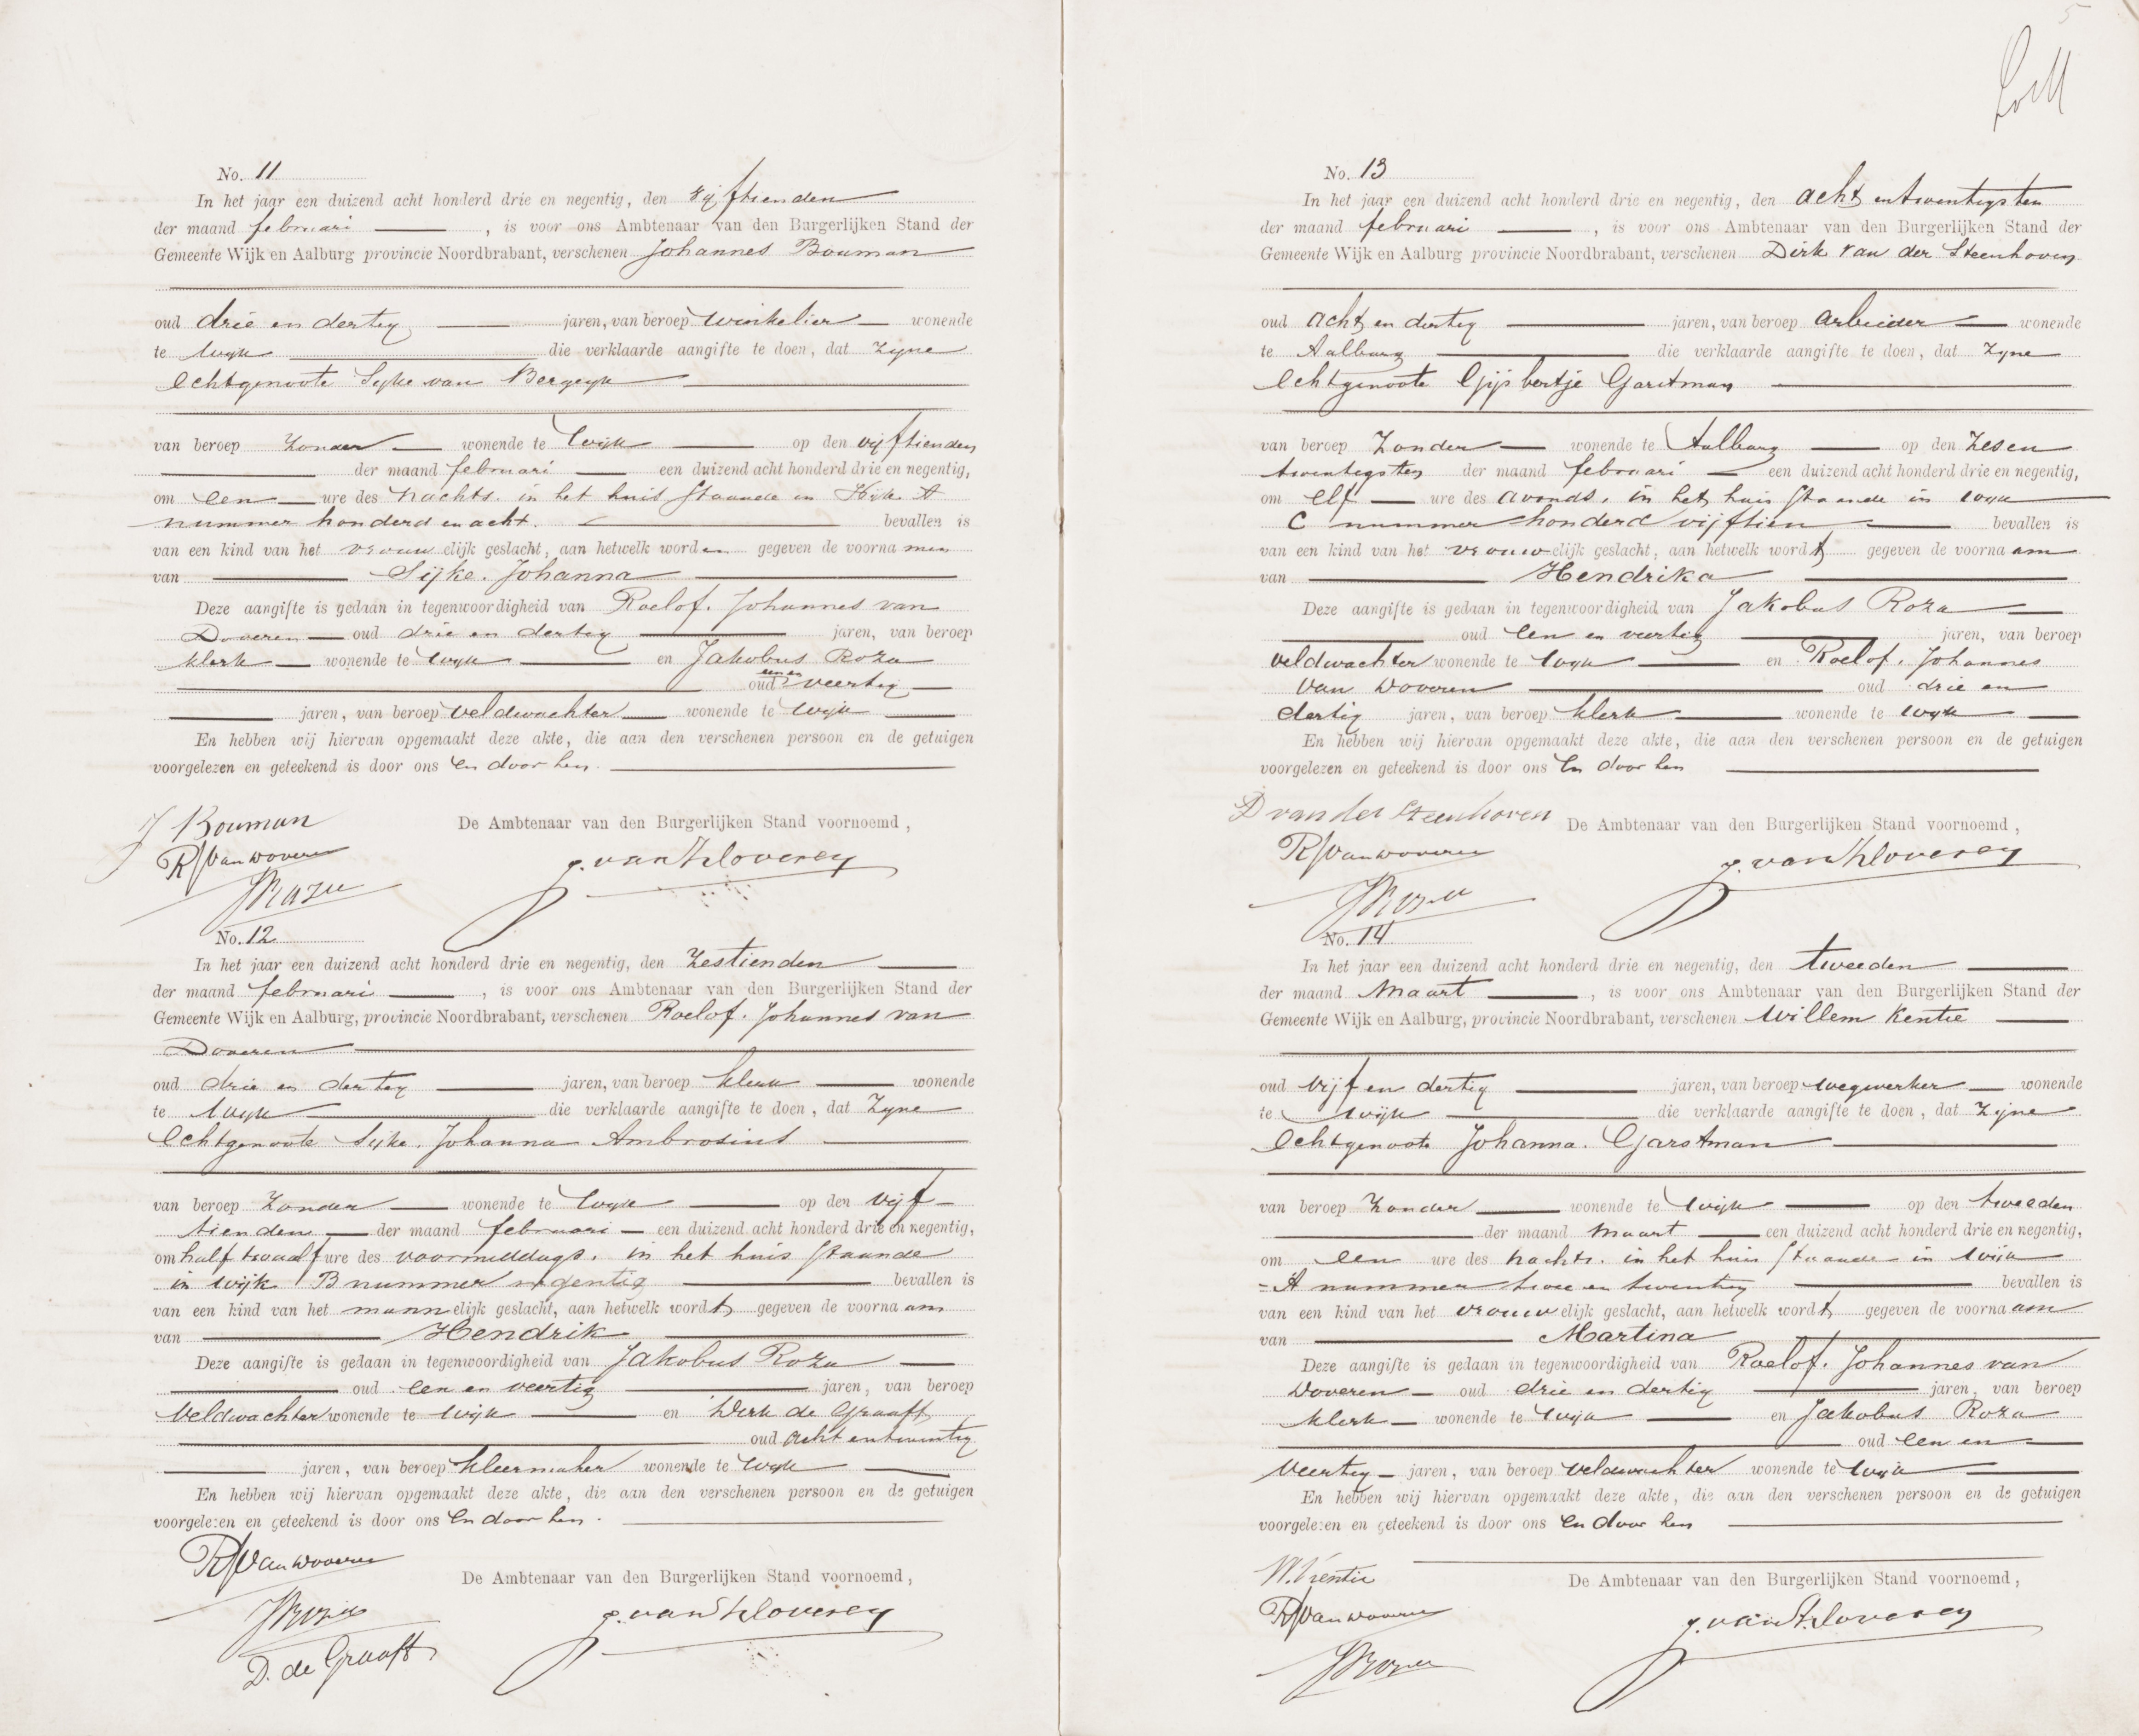 No. 11
In het jaar een duizend acht honderd drie en negentig, den vijftienden
der maand februari, is voor ons Ambtenaar van den Burgerlijken Stand der
Gemeente Wijk en Aalburg provincie Noordbrabant, verschenen Johannes Bouman
oud drie en dertig jaren, van beroep winkelier wonende
te Wijk die verklaarde aangifte te doen, dat zijne
Echtgenoote Sijke van Bergeijk
van beroep zonder wonende te Wijk op den vijftienden
der maand februari een duizend acht honderd drie en negentig,
om een ure des nachts. in het huis staande in Wijk A
nummer honderd en acht. bevallen is
van een kind van het vrouwelijk geslacht, aan hetwelk worden gegeven de voornamen
van Sijke. Johanna
Deze aangifte is gedaan in tegenwoordigheid van Roelof. Johannes van
Woveren oud drie en dertig jaren, van beroep
klerk wonende te Wijk en Jakobus Roza
oud een en veertig
jaren, van beroep veldwachter wonende te Wijk
En hebben wij hiervan opgemaakt deze akte, die aan den verschenen persoon en de getuigen
voorgelezen en geteekend is door ons en door hen.
J Bouman
De Ambtenaar van den Burgerlijken Stand voornoemd,
RJ van Woveren
JRoza
No. 12
In het jaar een duizend acht honderd drie en negentig, den zestienden
der maand februari, is voor ons Ambtenaar van den Burgerlijken Stand der
Gemeente Wijk en Aalburg, provincie Noordbrabant, verschenen Roelof. Johannes van
Woveren
oud drie en dertig jaren, van beroep klerk wonende
te Wijk die verklaarde aangifte te doen, dat zijne
Echtgenoote Sijke. Johanna Ambrosius
van beroep zonder wonende te Wijk op den vijf-
tienden der maand februari een duizend acht honderd drie en negentig,
om half twaalf ure des voormiddags. in het huis staande
in Wijk B nummer negentig bevallen is
van een kind van het mannelijk geslacht, aan hetwelk wordt gegeven de voornaam
van Hendrik
Deze aangifte is gedaan in tegenwoordigheid van Jakobus Roza
oud een en veertig jaren, van beroep
Veldwachter wonende te Wijk en Dirk de Graaff
oud acht en twintig
jaren, van beroep kleermaker wonende te Wijk
En hebben wij hiervan opgemaakt deze akte, die aan den verschenen persoon en de getuigen
voorgelezen en geteekend is door ons en door hen.
RJ van Woveren
De Ambtenaar van den Burgerlijken Stand voornoemd,
JRoza
D. de Graaff
5
No. 13
In het jaar een duizend acht honderd drie en negentig, den acht en twentigsten
der maand februari, is voor ons Ambtenaar van den Burgerlijken Stand der
Gemeente Wijk en Aalburg provincie Noordbrabant, verschenen Dirk van der Steenhoven
oud acht en dertig jaren, van beroep arbeider wonende
te Aalburg die verklaarde aangifte te doen, dat zijne
Echtgenoote Gijsbertje Garstman
van beroep zonder wonende te Aalburg op den zesen
twentigsten der maand februari een duizend acht honderd drie en negentig,
om elf ure des avonds. in het huis staande in Wijk
C nummer honderd vijftien bevallen is
van een kind van het vrouwelijk geslacht, aan hetwelk wordt gegeven de voornaam
van Hendrika
Deze aangifte is gedaan in tegenwoordigheid van Jakobus Roza
oud een en veertig jaren, van beroep
veldwachter wonende te Wijk en Roelof. Johannes
van Woveren oud drie en
dertig jaren, van beroep klerk wonende te Wijk
En hebben wij hiervan opgemaakt deze akte, die aan den verschenen persoon en de getuigen
voorgelezen en geteekend is door ons en door hen
D van der Steenhoven
De Ambtenaar van den Burgerlijken Stand voornoemd,
RJ van Woveren
JRoza
No. 14
In het jaar een duizend acht honderd drie en negentig, den tweeden
der maand Maart, is voor ons Ambtenaar van den Burgerlijken Stand der
Gemeente Wijk en Aalburg, provincie Noordbrabant, verschenen Willem Kentie
oud vijf en dertig jaren, van beroep wegwerker wonende
te Wijk die verklaarde aangifte te doen, dat zijne
Echtgenoote Johanna. Garstman
van beroep zonder wonende te Wijk op den tweeden
der maand Maart een duizend acht honderd drie en negentig,
om een ure des nachts. in het huis staande in Wijk
A nummer twee en twintig bevallen is
van een kind van het vrouwelijk geslacht, aan hetwelk wordt gegeven de voornaam
van Martina
Deze aangifte is gedaan in tegenwoordigheid van Roelof. Johannes van
Woveren oud drie en dertig jaren, van beroep
klerk wonende te Wijk en Jakobus Roza
oud een en
veertig jaren, van beroep veldwachter wonende te Wijk
En hebben wij hiervan opgemaakt deze akte, die aan den verschenen persoon en de getuigen
voorgelezen en geteekend is door ons en door hen
W. Kentie
De Ambtenaar van den Burgerlijken Stand voornoemd,
RJ van Woveren
JRoza